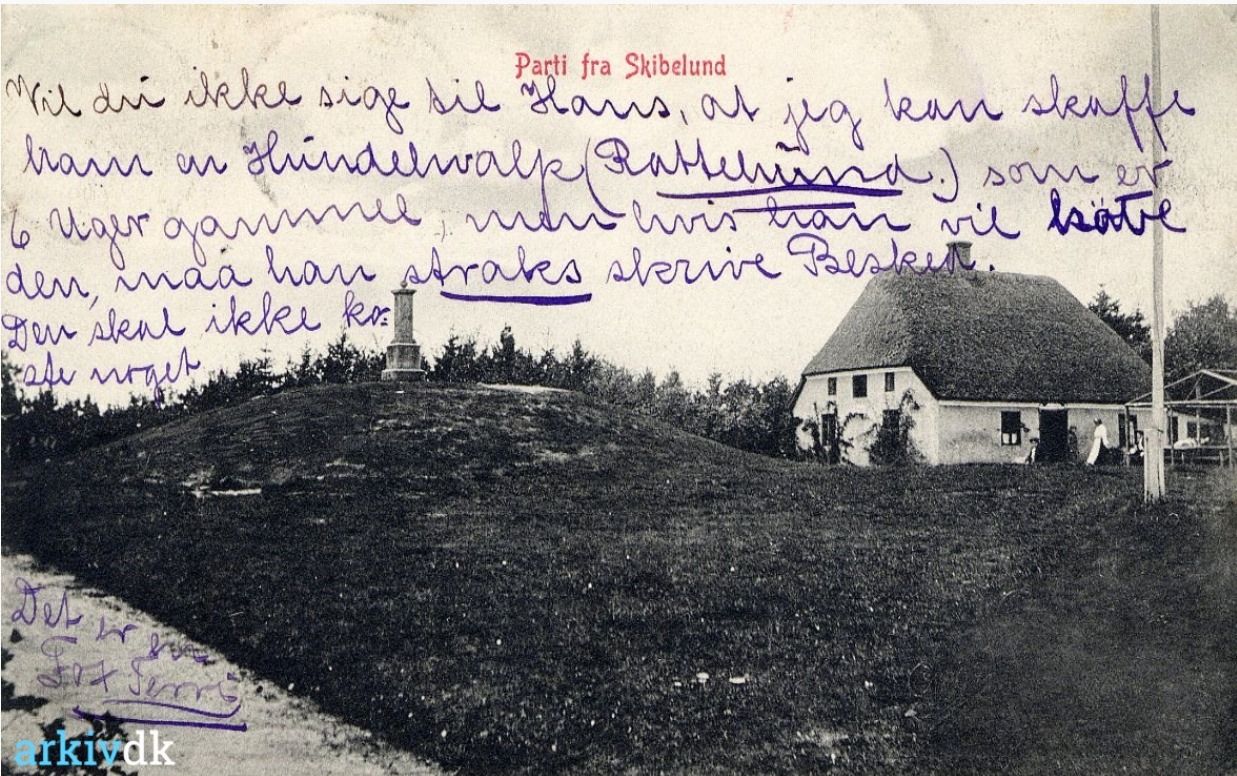 Parti fra Skibelund
Vil du ikke sige til Hans, at jeg kan skaffe
ham en Hundehvalp (Rattehund.) som er
6 Uger gammel, men hvis han vil have
den, maa han straks skrive Besked.
Den skal ikke ko=
ste noget
Det er en
Fox Terri
arkivdk